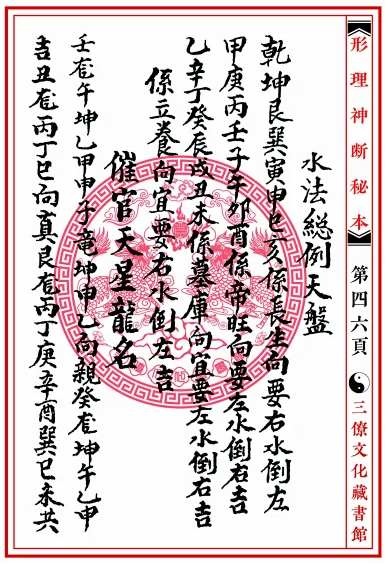 形理神断秘本
第四六頁
三僚文化藏書館
水法總例天盤
乾坤艮巽寅申巳亥係長生向要右水倒左
甲庚丙壬子午卯酉係帝旺向要左水倒右吉
乙辛丁癸辰戌丑未係墓庫向宜要左水倒右吉
係立養向宜要右水倒左吉
催官天星龍名
壬龙午坤乙甲申子竜坤申乙向親癸龙坤午乙申
吉丑龙丙丁巳向真艮龙丙丁庚辛酉巽巳未共